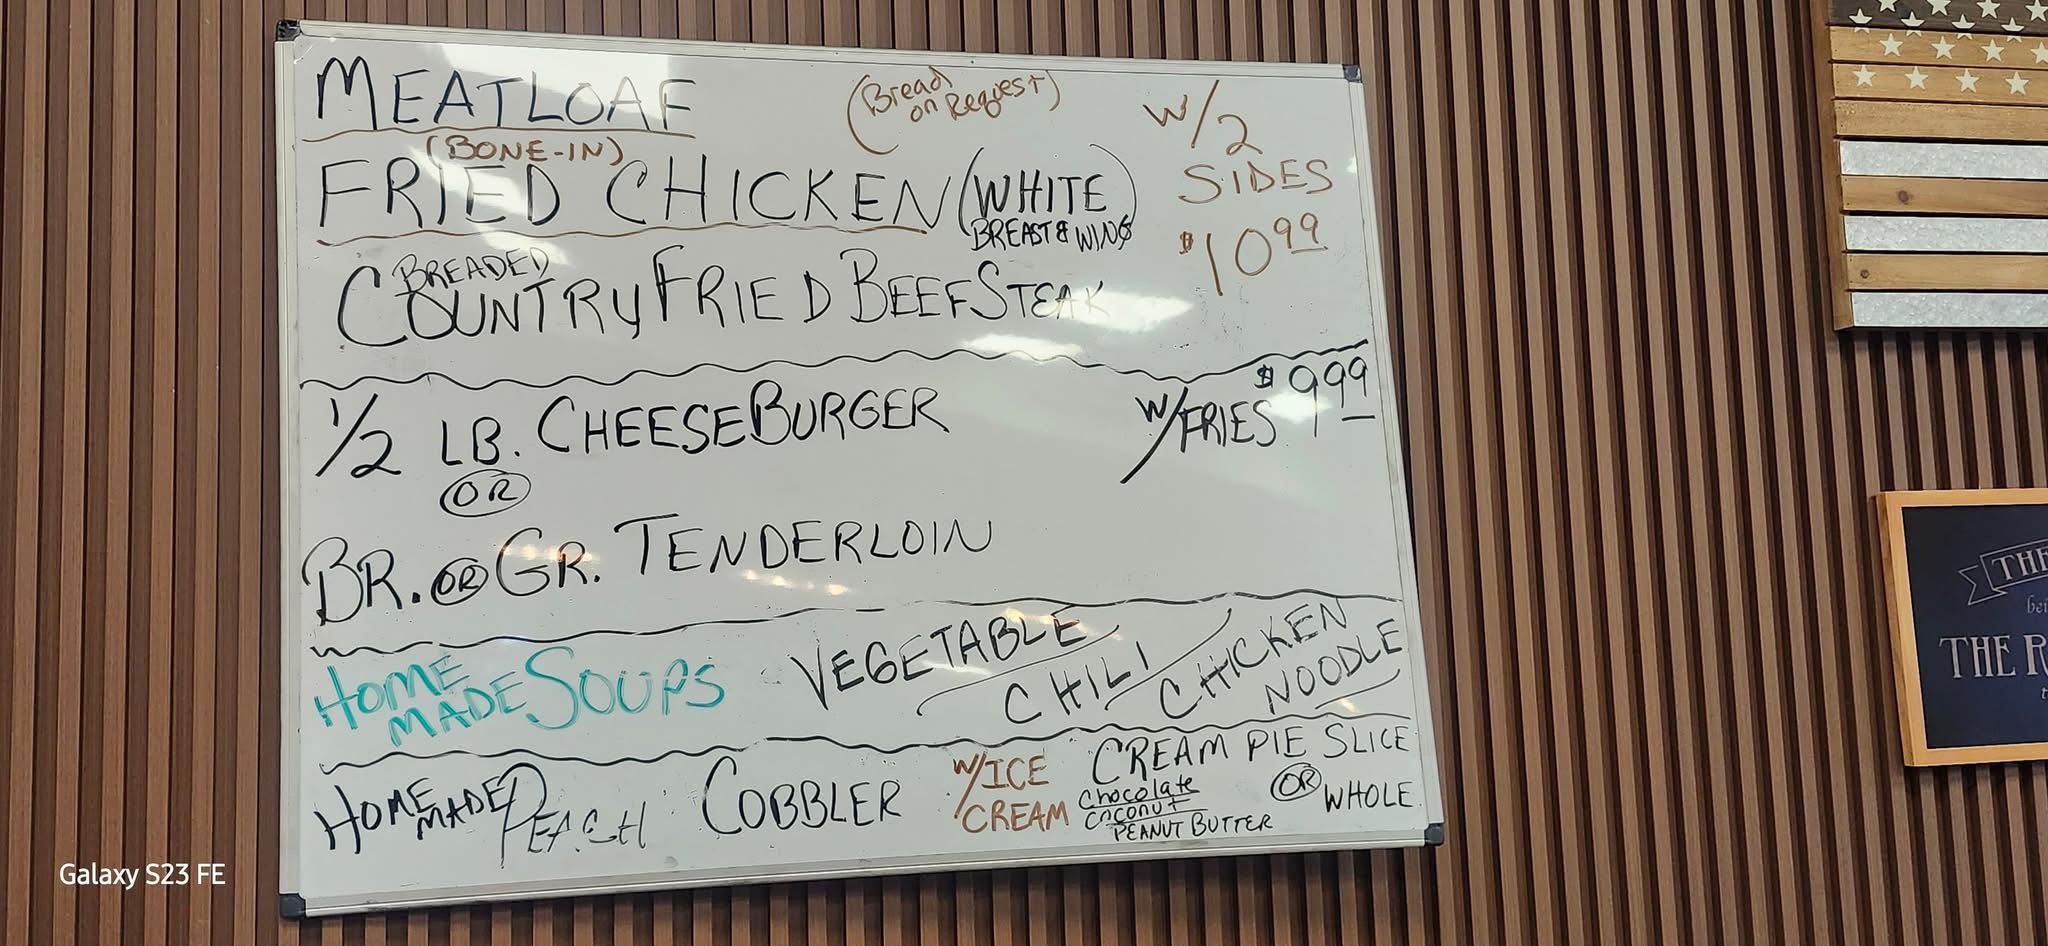 MEATLOAF
(Bread on Request)
W/2 SIDES $10.99
(BONE-IN)
FRIED CHICKEN (WHITE)
BREAST & WING
BREADED
COUNTRY FRIED BEEF STEAK
1/2 LB. CHEESEBURGER
W/FRIES $9.99
OR
BR. OR GR. TENDERLOIN
HOME MADE SOUPS
VEGETABLE
CHILI
CHICKEN NOODLE
HOME MADE PEACH COBBLER
W/ICE CREAM
CREAM PIE SLICE
OR WHOLE
Chocolate
Coconut
PEANUT BUTTER
THE
THE
Galaxy S23 FE